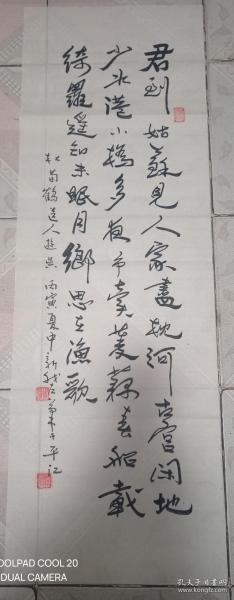 君到姑蘇見人家盡枕河古宮閑地
少水港小橋多夜市賣菱藕春船載
綺羅遥知未眠月鄉思在漁歌
杜荀鶴送人遊吳 丙寅夏中
平江
OOLPAD COOL 20
DUAL CAMERA